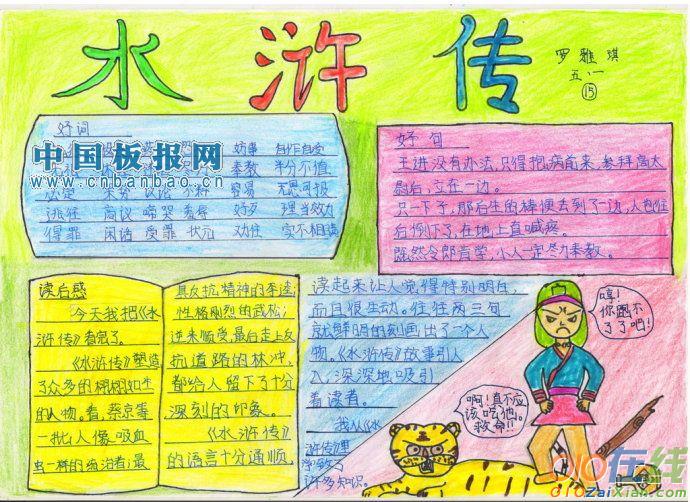 水浒传
罗雅琪
五、一
⑮
好词
妨事 自作自受
奉教 半分不值
容易 无恩可报
逃任 商议 啼哭 歹 理当效力
得罪 闲话 受罪 状元 劝住 实不相瞒
中国板报网
www.cnbanbao.cn
好句
王进没有办法,只得抱病前来,参拜高太
尉后,立在一边。
只一下子,那后生的棒便丢到了一边,人也往
后倒下了,在地上直喊疼。
既然令郎肯学,小人一定尽力奉教。
读后感
今天我把《水
浒传》看完了。
《水浒传》塑造
了众多的栩栩如生
的人物。看,蔡京等
一批人像吸血
虫一样的统治者,最
具反抗精神的李逵,
性格刚烈的武松;
逆来顺受最后走上反
抗道路的林冲,
都给人留下了十分
深刻的印象。
《水浒传》
的语言十分通顺,
读起来让人觉得特别明白,
而且很生动。往往两三句
就鲜明的刻画出了一个人
物。《水浒传》故事引人
入,深深地吸引
着读者。
我从《水
浒传》里
学会了
许多知识。
哼!
你跑不
了了吧!
啊!真不应
该吃他。
救命!!
010在线
010zaiXian.com